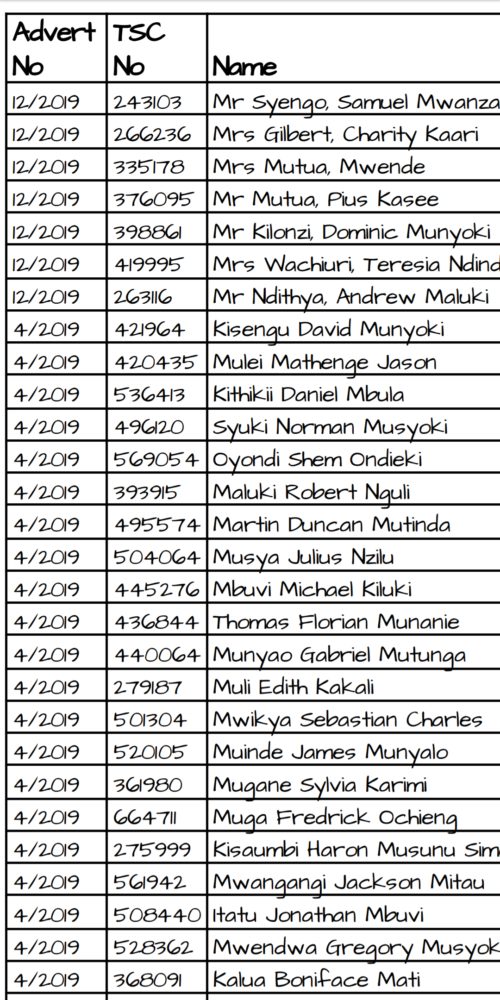 Advert No TSC No Name
12/2019 243103 Mr Syengo, Samuel Mwanza
12/2019 266236 Mrs Gilbert, Charity Kaari
12/2019 335178 Mrs Mutua, Mwende
12/2019 376095 Mr Mutua, Pius Kasee
12/2019 398861 Mr Kilonzi, Dominic Munyoki
12/2019 419995 Mrs Wachiuri, Teresia Ndind
12/2019 263116 Mr Ndithya, Andrew Maluki
4/2019 421964 Kisengu David Munyoki
4/2019 420435 Mulei Mathenge Jason
4/2019 536413 Kithikii Daniel Mbula
4/2019 496120 Syuki Norman Musyoki
4/2019 569054 Oyondi Shem Ondieki
4/2019 393915 Maluki Robert Nguli
4/2019 495574 Martin Duncan Mutinda
4/2019 504064 Musya Julius Nzilu
4/2019 445276 Mbuvi Michael Kiluki
4/2019 436844 Thomas Florian Munanie
4/2019 440064 Munyao Gabriel Mutunga
4/2019 279187 Muli Edith Kakali
4/2019 501304 Mwikya Sebastian Charles
4/2019 520105 Muinde James Munyalo
4/2019 361980 Mugane Sylvia Karimi
4/2019 664711 Muga Fredrick Ochieng
4/2019 275999 Kisaumbi Haron Musunu Sim
4/2019 561942 Mwangangi Jackson Mitau
4/2019 508440 Itatu Jonathan Mbuvi
4/2019 528362 Mwendwa Gregory Musyok
4/2019 368091 Kalua Boniface Mati